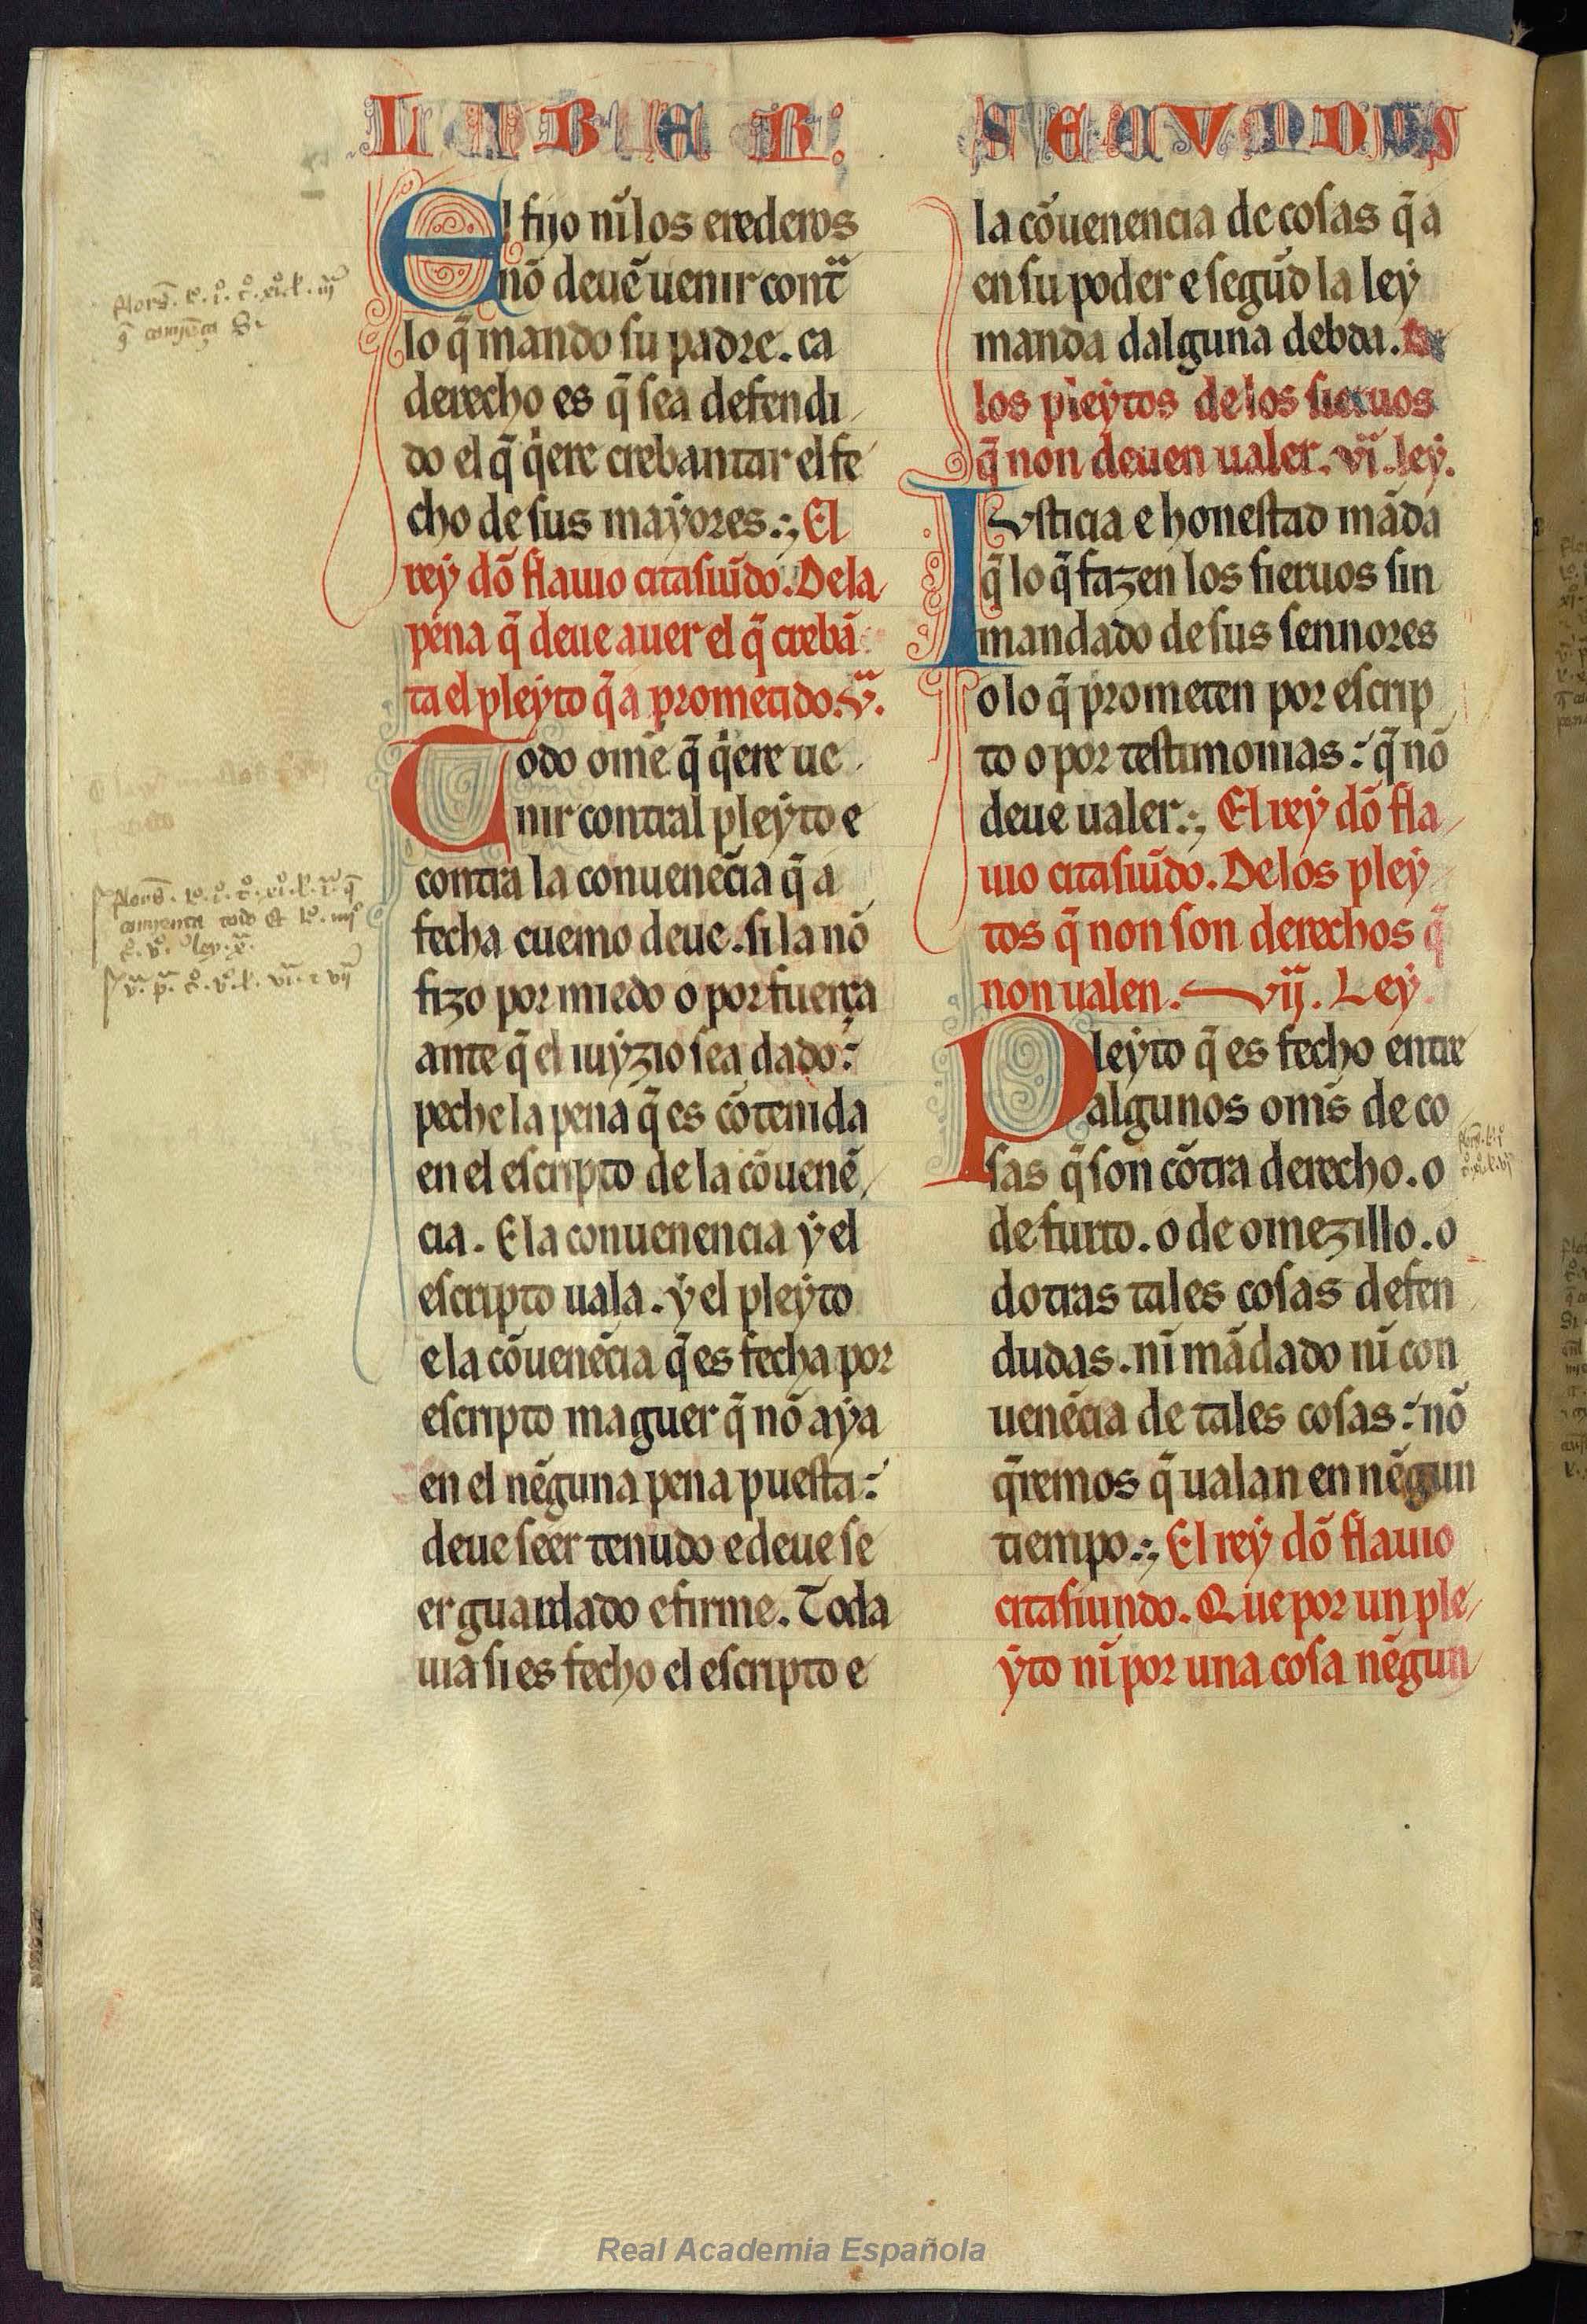 LIBER SECUNDUS
El fijo nĩ los erederos
nõ deuẽ uenir contͣ
lo q̃ mando su padre. ca
derecho es q̃ sea defendi
do el q̃ q̃ere crebantar el fe
cho de sus mayores. El
rey dõ flauio citasiũdo. De la
pena q̃ deue auer el q̃ crebã
ta el pleyto q̃ a prometido. v.ͣ
Todo ome q̃ q̃ere ue
nir contral pleyto e
contra la conuenẽcia q̃ a
fecha cuemo deue. si la nõ
fizo por miedo o por fuerça
ante q̃ el iuyzio sea dado:
peche la pena q̃ es cõtenida
en el escripto de la cõuenẽ
cia. E la conuenencia y el
escripto uala. y el pleyto
e la cõuenẽcia q̃ es fecha por
escripto maguer q̃ nõ aya
en el nẽguna pena puesta:
deue seer tenudo e deue se
er guardado e firme. Toda
uia si es fecho el escripto e
la cõuenencia de cosas q̃ a
en su poder e segũd la ley
manda dalguna debda. De
los pleytos de los sieruos
q̃ non deuen ualer. vi. ley.
Iusticia e honestad mãda
q̃ lo q̃ fazen los sieruos sin
mandado de sus sennores
o lo q̃ prometen por escrip
to o por testimonias: q̃ nõ
deue ualer. El rey dõ fla
uio citasiũdo. De los pley
tos q̃ non son derechos q̃
non ualen. vij. Ley
Pleyto q̃ es fecho entre
algunos om̃s de co
sas q̃ son cõtra derecho. o
de furto. o de omezillo. o
dotras tales cosas defen
dudas. nĩ mãdado nĩ con
uenẽcia de tales cosas: nõ
q̃remos q̃ ualan en nẽgun
tiempo. El rey dõ flauio
citasiundo. Que por un ple
yto nĩ por una cosa nẽgun
Real Academia Española